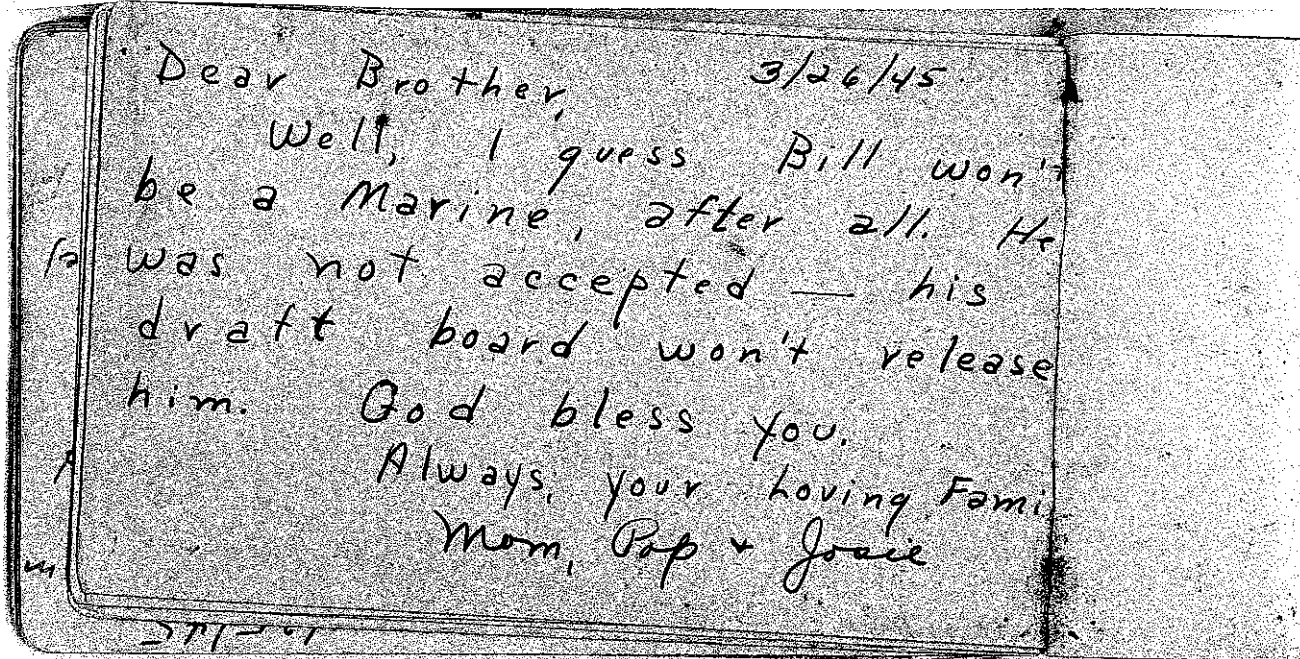 Dear Brother, 3/26/45
Well, I guess Bill won't
be a Marine, after all. He
was not accepted — his
draft board won't release
him. God bless you.
Always, your Loving Fami
Mom, Pop + Josie